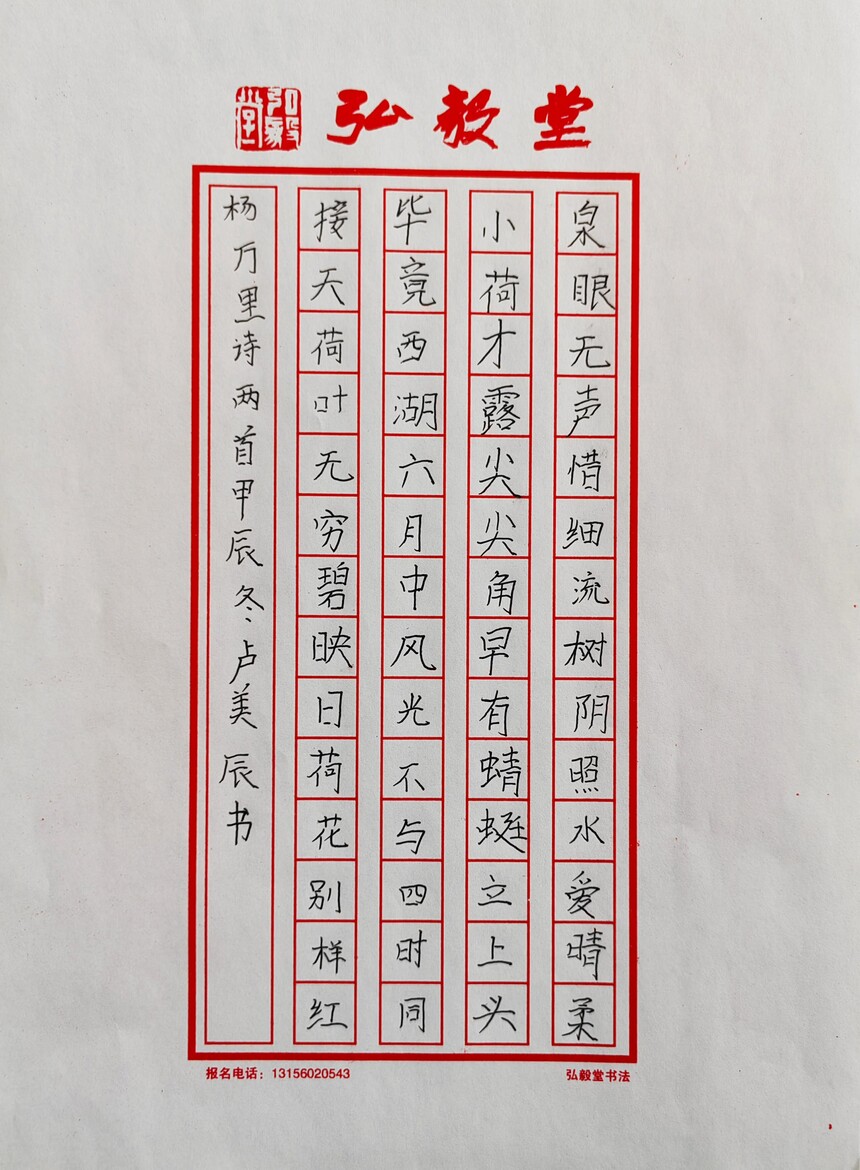 弘毅堂
弘毅堂
泉眼无声惜细流树阴照水爱晴柔
小荷才露尖尖角早有蜻蜓立上头
毕竟西湖六月中风光不与四时同
接天荷叶无穷碧映日荷花别样红
杨万里诗两首甲辰冬卢美辰书
报名电话：13156020543
弘毅堂书法